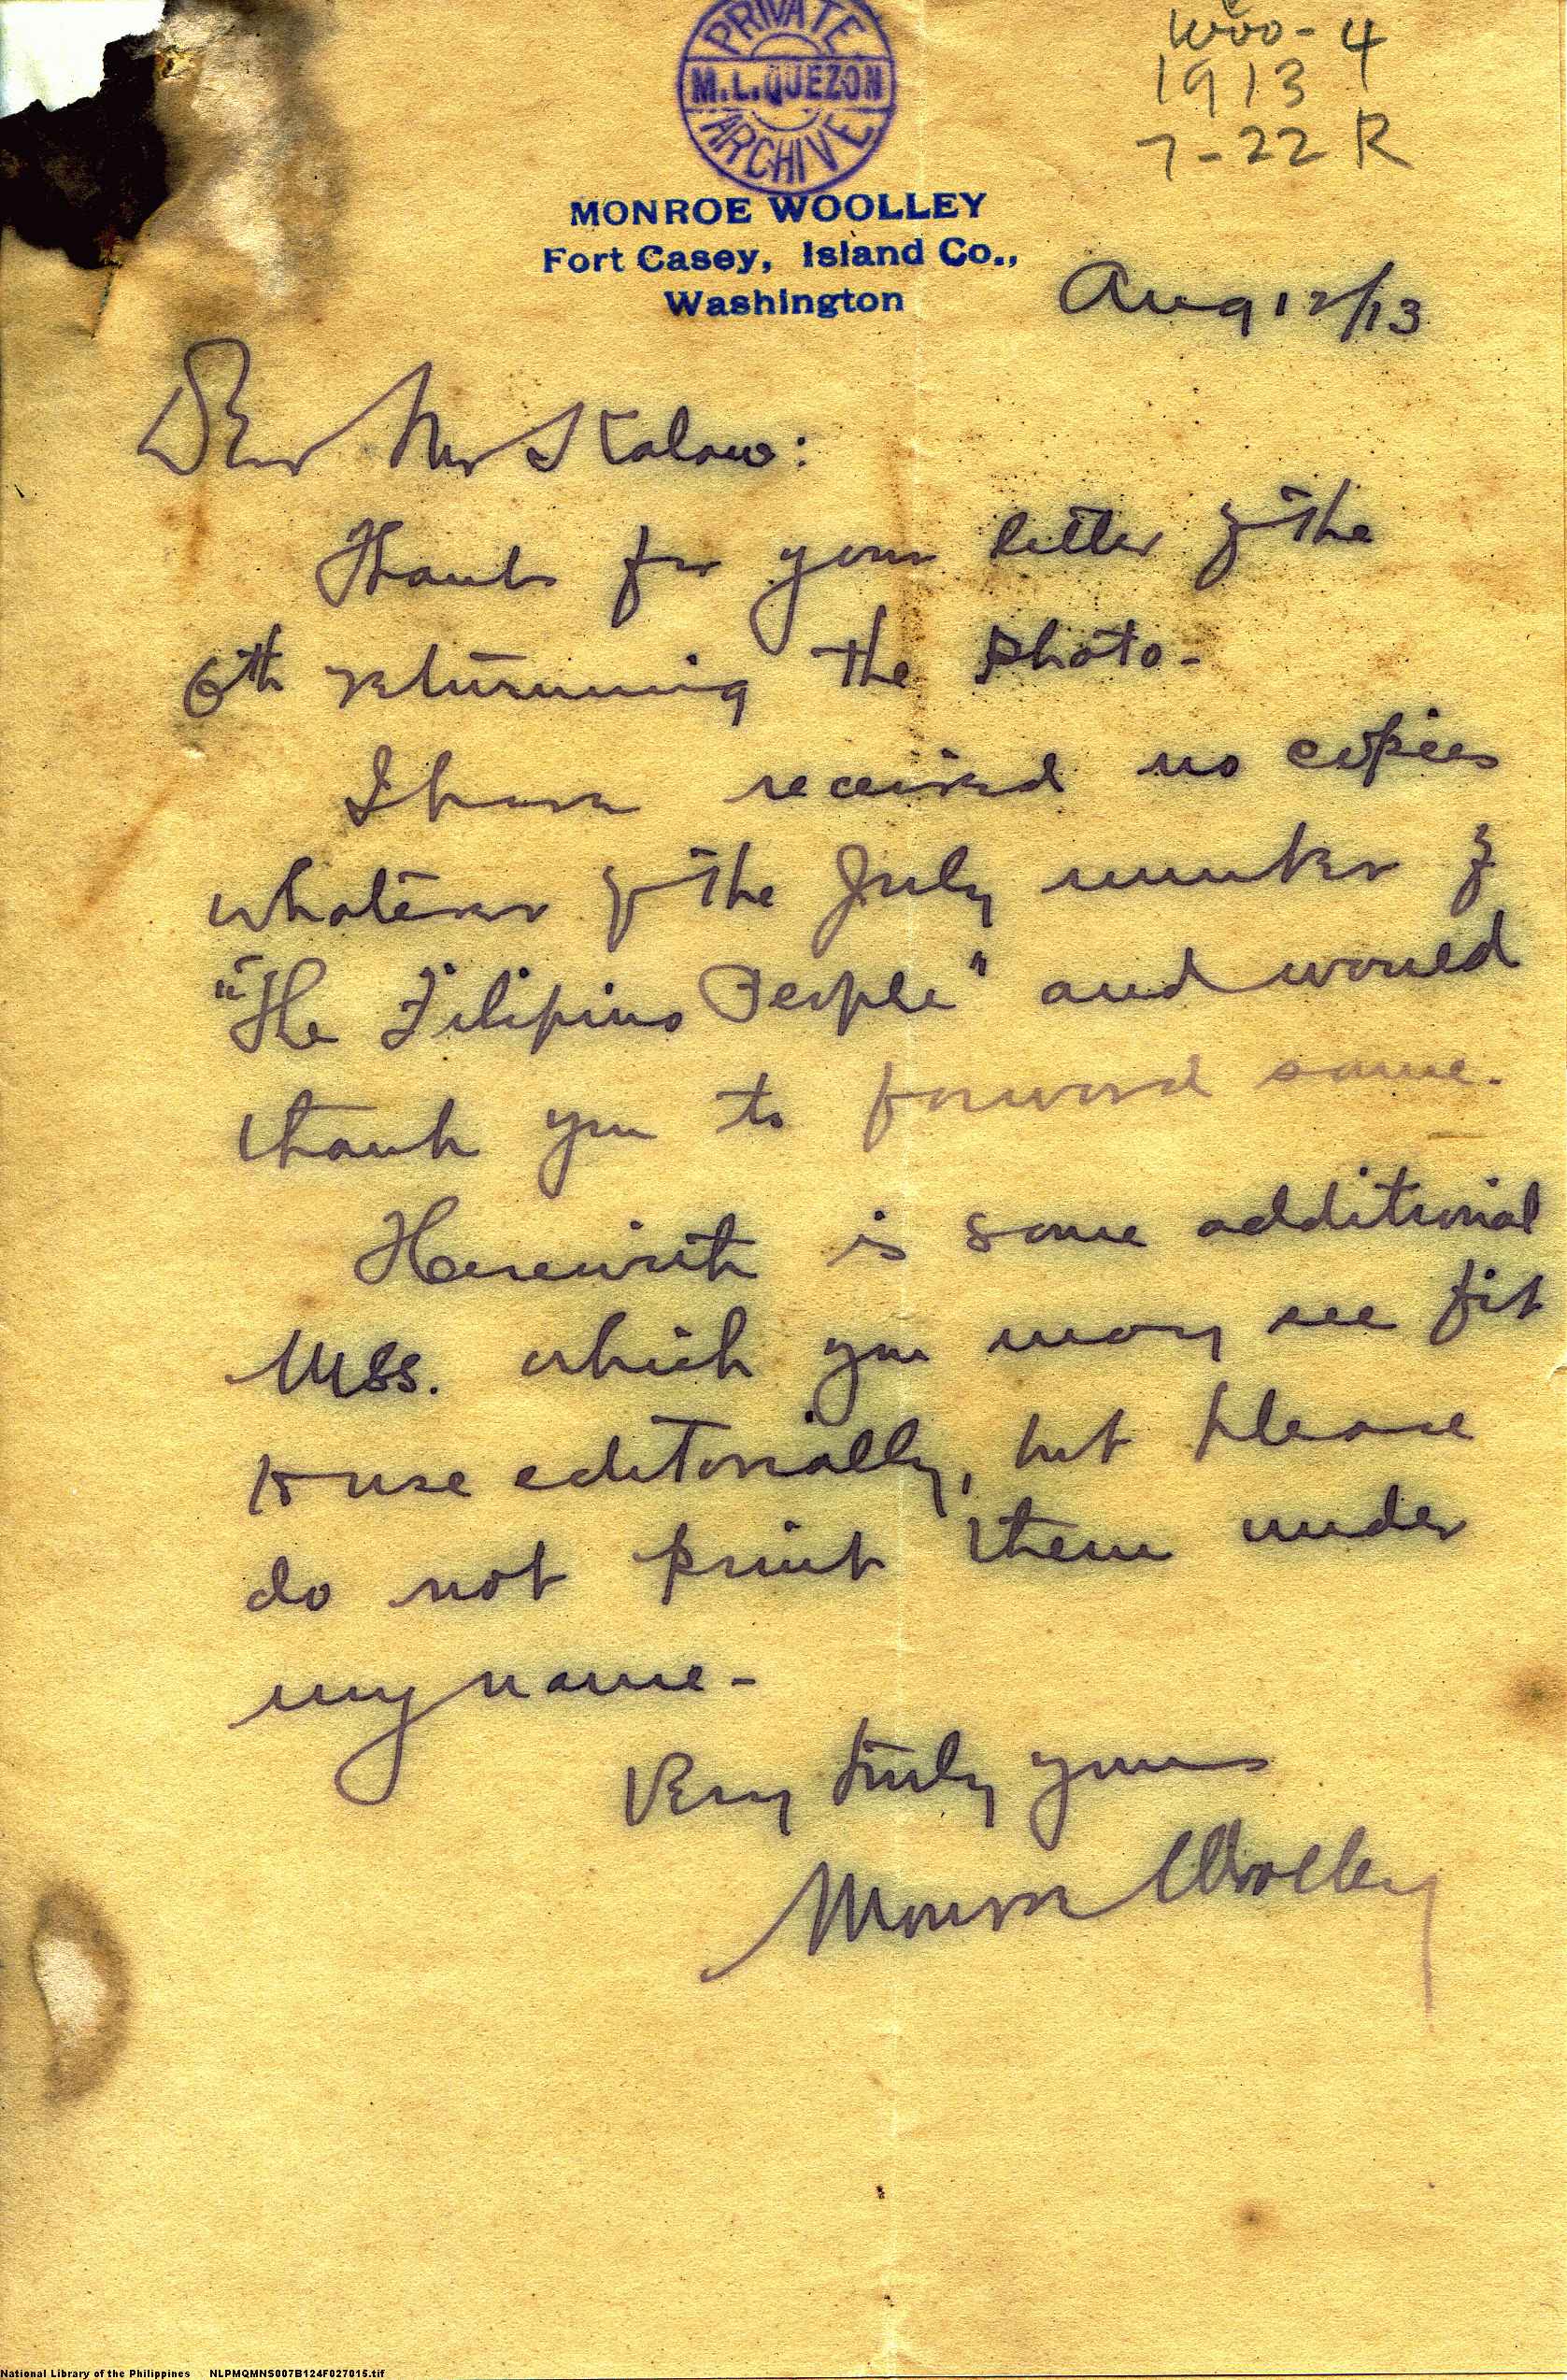 PRIVATE
M.L.QUEZON
ARCHIVE
Woo-4
1913
7-22 R
MONROE WOOLLEY
Fort Casey, Island Co.,
Washington
Aug 12/13
Dear Mr Kalaw:
Thanks for your letter of the
6th returning the photo-
I have received no copies
whatever of the July number of
"The Filipino People" and would
thank you to forward same.
Herewith is some additional
Mss. which you may see fit
to use editorially, but please
do not print them under
my name-
Very truly yours
Monroe Woolley
National Library of the Philippines NLPMQMNS007B124F027015.tif